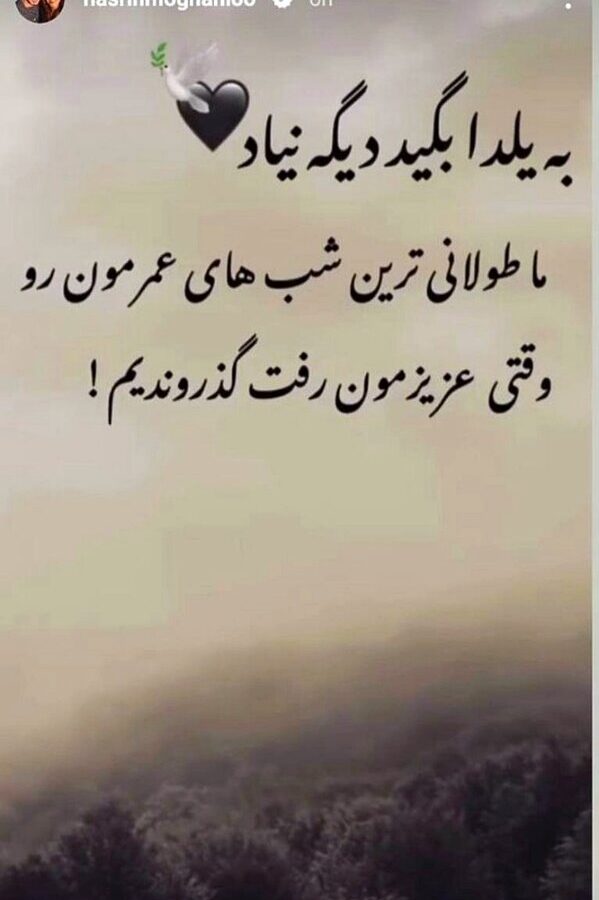 6h
به یلدا بگید دیگه نیاد
ما طولانی ترین شب های عمرمون رو
وقتی عزیزمون رفت گذروندیم !